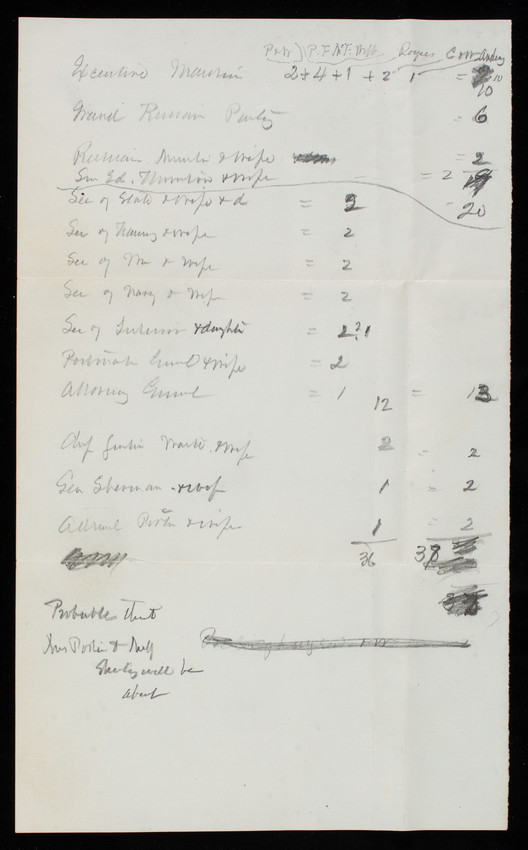 Executive Mansion 2+4+1+2 1 = 10
Grand Russian Party = 6
Russian Minister & wife = 2
& wife = 2
20
Sec of State & wife & d = 2
Sec of Treasury & wife = 2
Sec of War & wife = 2
Sec of Navy & wife = 2
Sec of Interior & daughter = 2?1
Postmaster Genl & wife = 2
Attorney General = 1 12 = 13
Chief Justice Waite & wife 2 = 2
Gen Sherman & wife 1 = 2
Admiral Porter & wife 1 = 2
36 38
Probable that
Mrs Porter &
Party will be
about